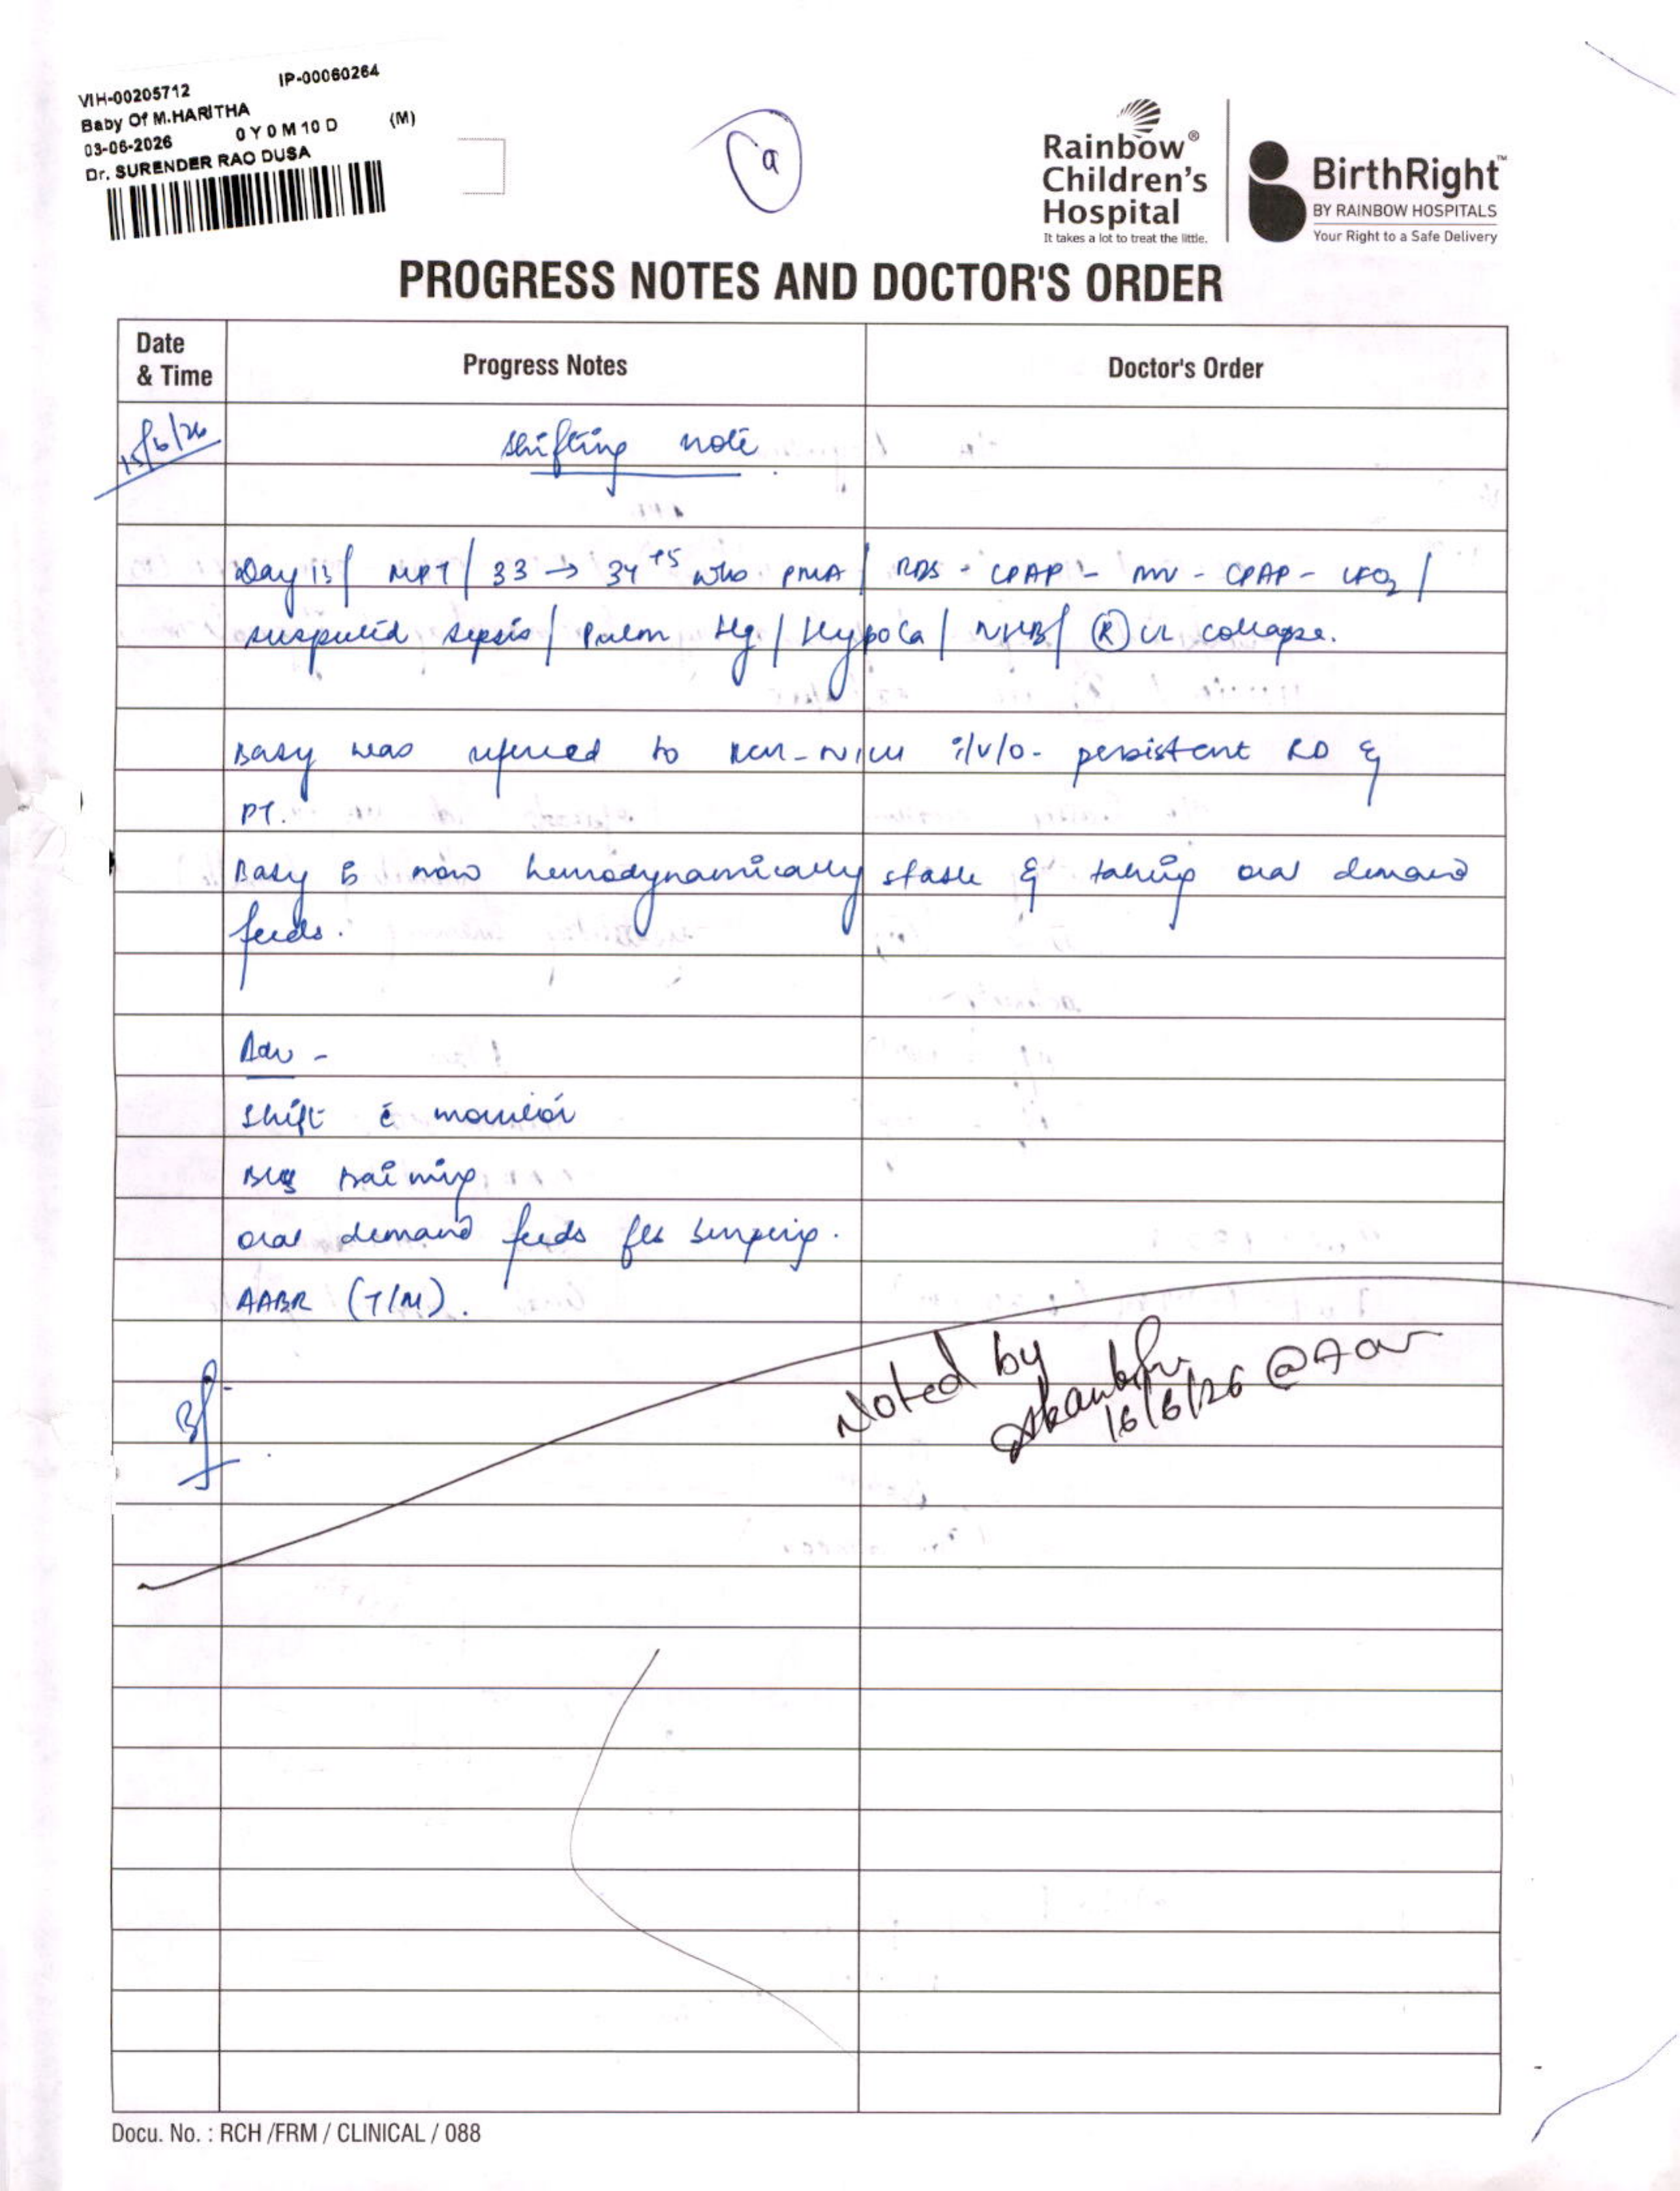 VIH-00205712 IP-00060264
Baby Of M.HARITHA
03-06-2026 0 Y 0 M 10 D (M)
Dr. SURENDER RAO DUSA
a
Rainbow®
Children's
Hospital
It takes a lot to treat the little.
BirthRight™
BY RAINBOW HOSPITALS
Your Right to a Safe Delivery
PROGRESS NOTES AND DOCTOR'S ORDER
Date
& Time
Progress Notes
Doctor's Order
15/6/26
Shifting note
Day 13/ MPT/ 33 → 34+5 wks PMA/ RDS - CPAP - MV - CPAP - LFO2/
suspected sepsis/ Pulm Hg/ HypoCa/ NNHB/ Ⓡ UL collapse.
Baby was referred to NICU i/v/o - persistent RD &
PT.
Baby is now hemodynamically stable & taking oral demand
feeds.
Adv -
Shift c̄ monitor
training
oral demand feeds f/b burping.
AABR (T/M).
Noted by
16/6/26 @
Docu. No. : RCH /FRM / CLINICAL / 088